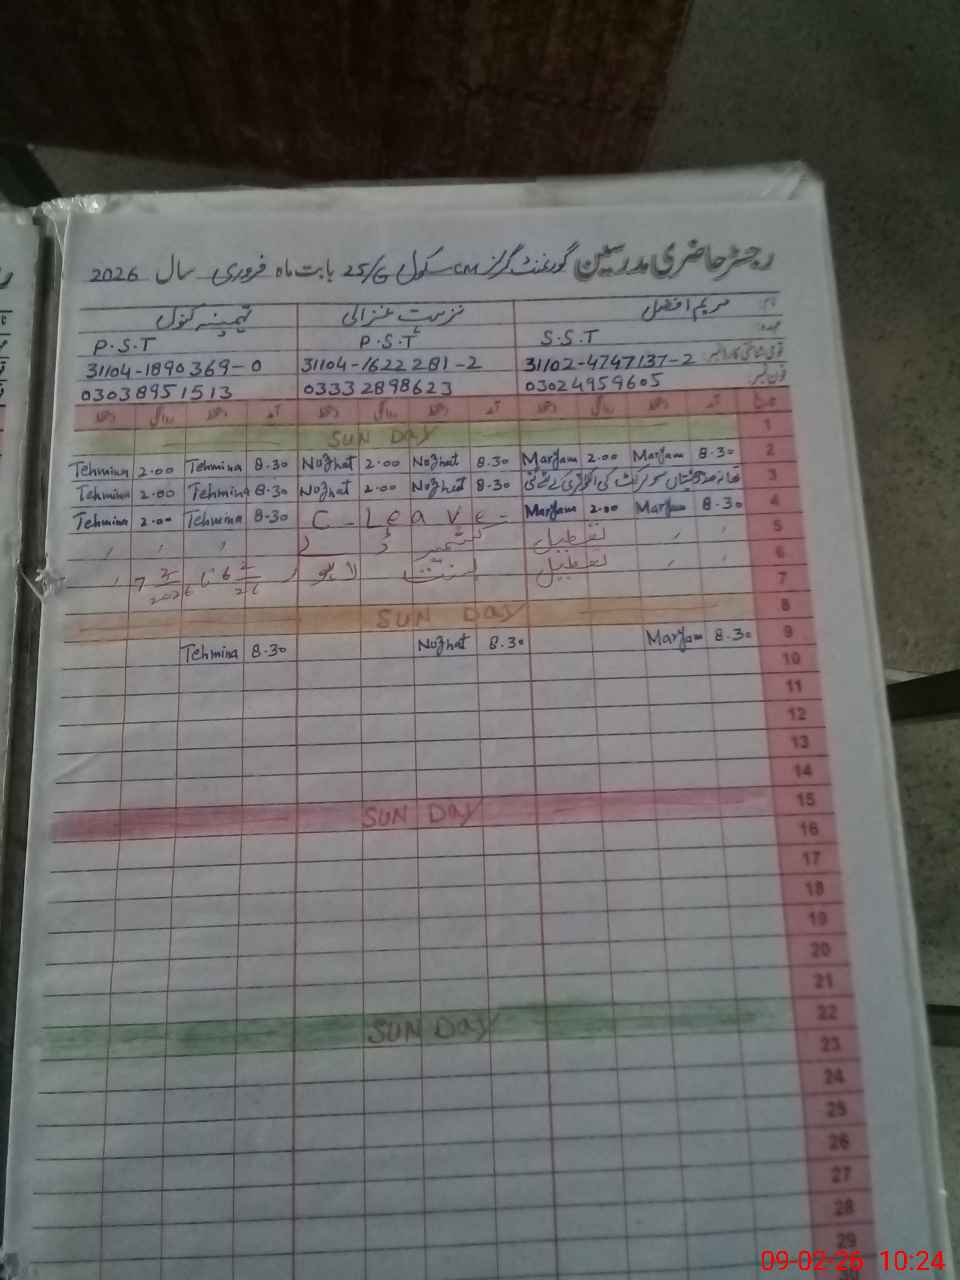 رجسٹر حاضری مدرسین گورنمنٹ گرلز CM سکول 25/G بابت ماہ فروری سال 2026
نام: مریم افضل نزہت غزالی تہمینہ کنول
عہدہ: S.S.T P.S.T P.S.T
قومی شناختی کارڈ نمبر: 31102-4747137-2 31104-1622281-2 31104-1890369-0
فون نمبر: 03024959605 03332898623 03038951513
تاریخ آمد دستخط روانگی دستخط آمد دستخط روانگی دستخط آمد دستخط روانگی دستخط
1 SUN DAY
2 8.30 Maryam 2.00 Maryam 8.30 Nozhat 2.00 Nozhat 8.30 Tehmina 2.00 Tehmina
3 8.30 Nozhat 2.00 Nozhat 8.30 Tehmina 2.00 Tehmina
4 8.30 Maryam 2.00 Maryam C - Leave - 8.30 Tehmina 2.00 Tehmina
5 〃 〃 تعطیل کشمیر ڈے 〃 〃 〃
6 〃 〃 تعطیل بسنت
7
8 SUN DAY
9 8.30 Maryam 8.30 Nozhat 8.30 Tehmina
10
11
12
13
14
15 SUN DAY
16
17
18
19
20
21
22 SUN DAY
23
24
25
26
27
28
29
09-02-26 10:24